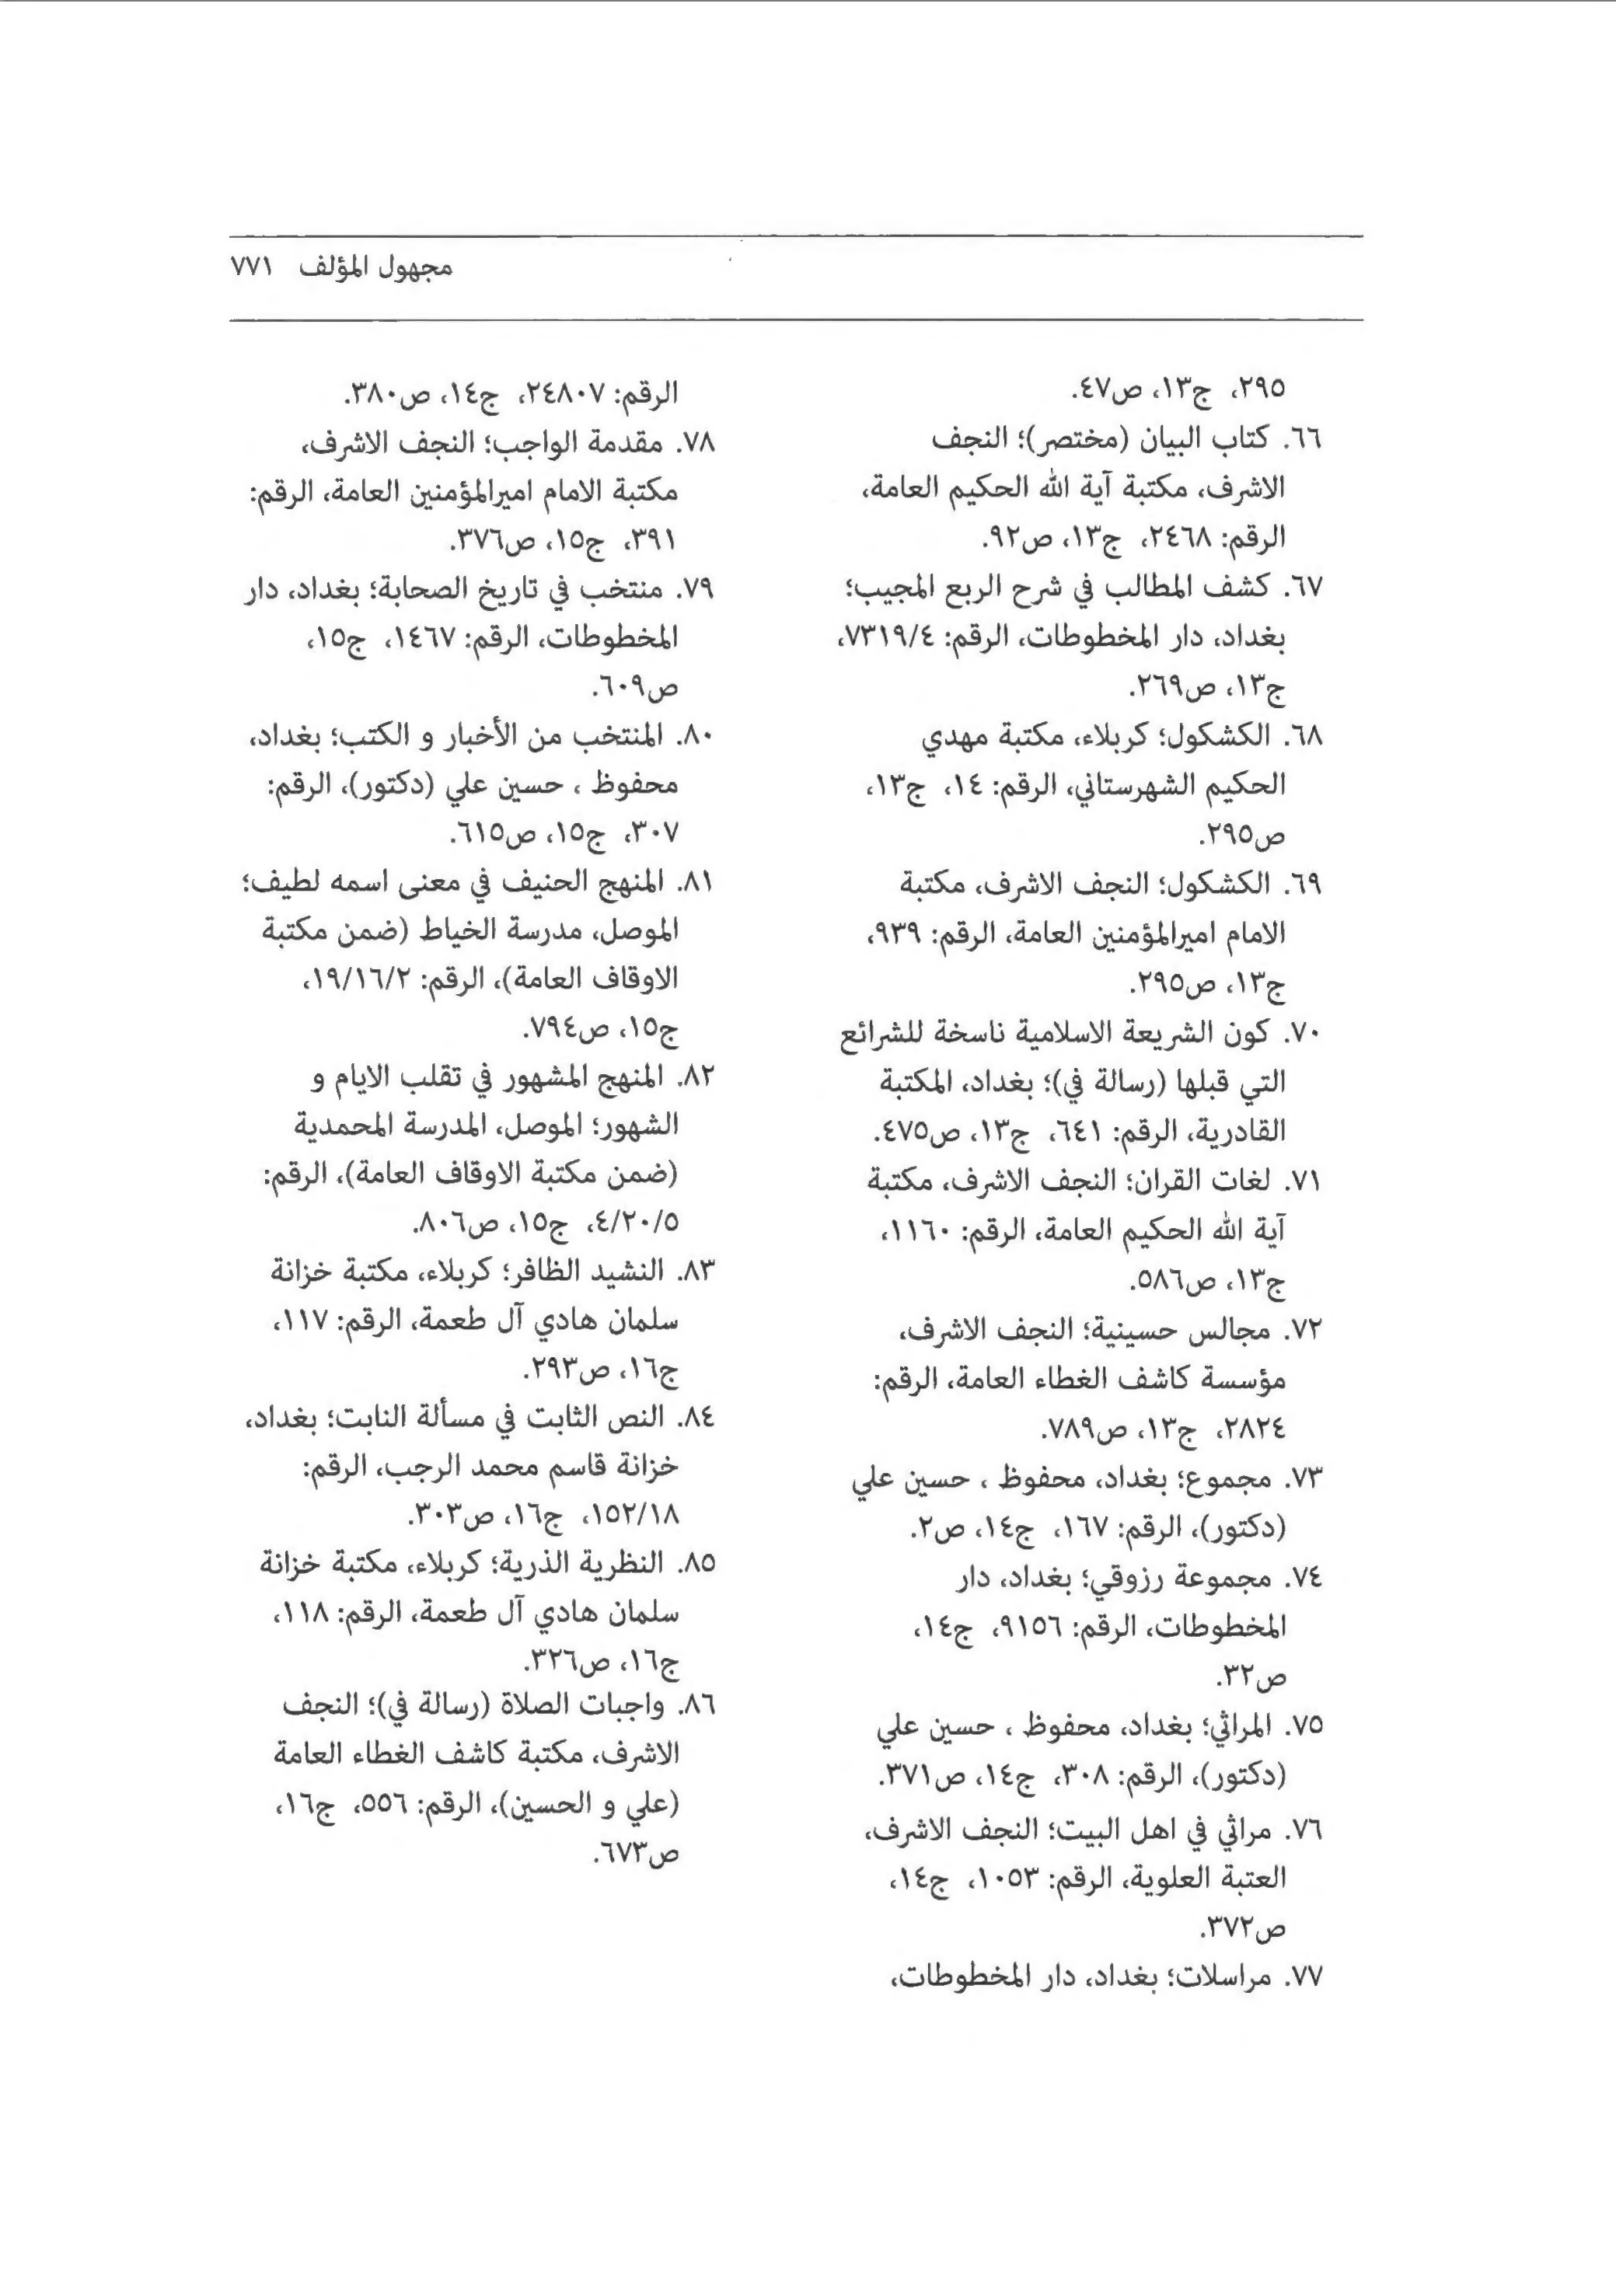 مجهول المؤلف ٧٧١
٢٩٥، ج١٣، ص٤٧.
٦٦. كتاب البيان (مختصر)؛ النجف
الاشرف، مكتبة آية الله الحكيم العامة،
الرقم: ٢٤٦٨، ج١٣، ص٩٢.
٦٧. كشف المطالب في شرح الربع المجيب؛
بغداد، دار المخطوطات، الرقم: ٧٣١٩/٤،
ج١٣، ص٢٦٩.
٦٨. الكشكول؛ كربلاء، مكتبة مهدي
الحكيم الشهرستاني، الرقم: ١٤، ج١٣،
ص٢٩٥.
٦٩. الكشكول؛ النجف الاشرف، مكتبة
الامام اميرالمؤمنين العامة، الرقم: ٩٣٩،
ج١٣، ص٢٩٥.
٧٠. كون الشريعة الاسلامية ناسخة للشرائع
التي قبلها (رسالة في)؛ بغداد، المكتبة
القادرية، الرقم: ٦٤١، ج١٣، ص٤٧٥.
٧١. لغات القران؛ النجف الاشرف، مكتبة
آية الله الحكيم العامة، الرقم: ١١٦٠،
ج١٣، ص٥٨٦.
٧٢. مجالس حسينية؛ النجف الاشرف،
مؤسسة كاشف الغطاء العامة، الرقم:
٢٨٢٤، ج١٣، ص٧٨٩.
٧٣. مجموع؛ بغداد، محفوظ ، حسين علي
(دكتور)، الرقم: ١٦٧، ج١٤، ص٢.
٧٤. مجموعة رزوقي؛ بغداد، دار
المخطوطات، الرقم: ٩١٥٦، ج١٤،
ص٣٢.
٧٥. المراثي؛ بغداد، محفوظ ، حسين علي
(دكتور)، الرقم: ٣٠٨، ج١٤، ص٣٧١.
٧٦. مراثي في اهل البيت؛ النجف الاشرف،
العتبة العلوية، الرقم: ١٠٥٣، ج١٤،
ص٣٧٢.
٧٧. مراسلات؛ بغداد، دار المخطوطات،
الرقم: ٢٤٨٠٧، ج١٤، ص٣٨٠.
٧٨. مقدمة الواجب؛ النجف الاشرف،
مكتبة الامام اميرالمؤمنين العامة، الرقم:
٣٩١، ج١٥، ص٣٧٦.
٧٩. منتخب في تاريخ الصحابة؛ بغداد، دار
المخطوطات، الرقم: ١٤٦٧، ج١٥،
ص٦٠٩.
٨٠. المنتخب من الأخبار و الكتب؛ بغداد،
محفوظ ، حسين علي (دكتور)، الرقم:
٣٠٧، ج١٥، ص٦١٥.
٨١. المنهج الحنيف في معنى اسمه لطيف؛
الموصل، مدرسة الخياط (ضمن مكتبة
الاوقاف العامة)، الرقم: ١٩/١٦/٢،
ج١٥، ص٧٩٤.
٨٢. المنهج المشهور في تقلب الايام و
الشهور؛ الموصل، المدرسة المحمدية
(ضمن مكتبة الاوقاف العامة)، الرقم:
٤/٢٠/٥، ج١٥، ص٨٠٦.
٨٣. النشيد الظافر؛ كربلاء، مكتبة خزانة
سلمان هادي آل طعمة، الرقم: ١١٧،
ج١٦، ص٢٩٣.
٨٤. النص الثابت في مسألة النابت؛ بغداد،
خزانة قاسم محمد الرجب، الرقم:
١٥٢/١٨، ج١٦، ص٣٠٣.
٨٥. النظرية الذرية؛ كربلاء، مكتبة خزانة
سلمان هادي آل طعمة، الرقم: ١١٨،
ج١٦، ص٣٢٦.
٨٦. واجبات الصلاة (رسالة في)؛ النجف
الاشرف، مكتبة كاشف الغطاء العامة
(علي و الحسين)، الرقم: ٥٥٦، ج١٦،
ص٦٧٣.